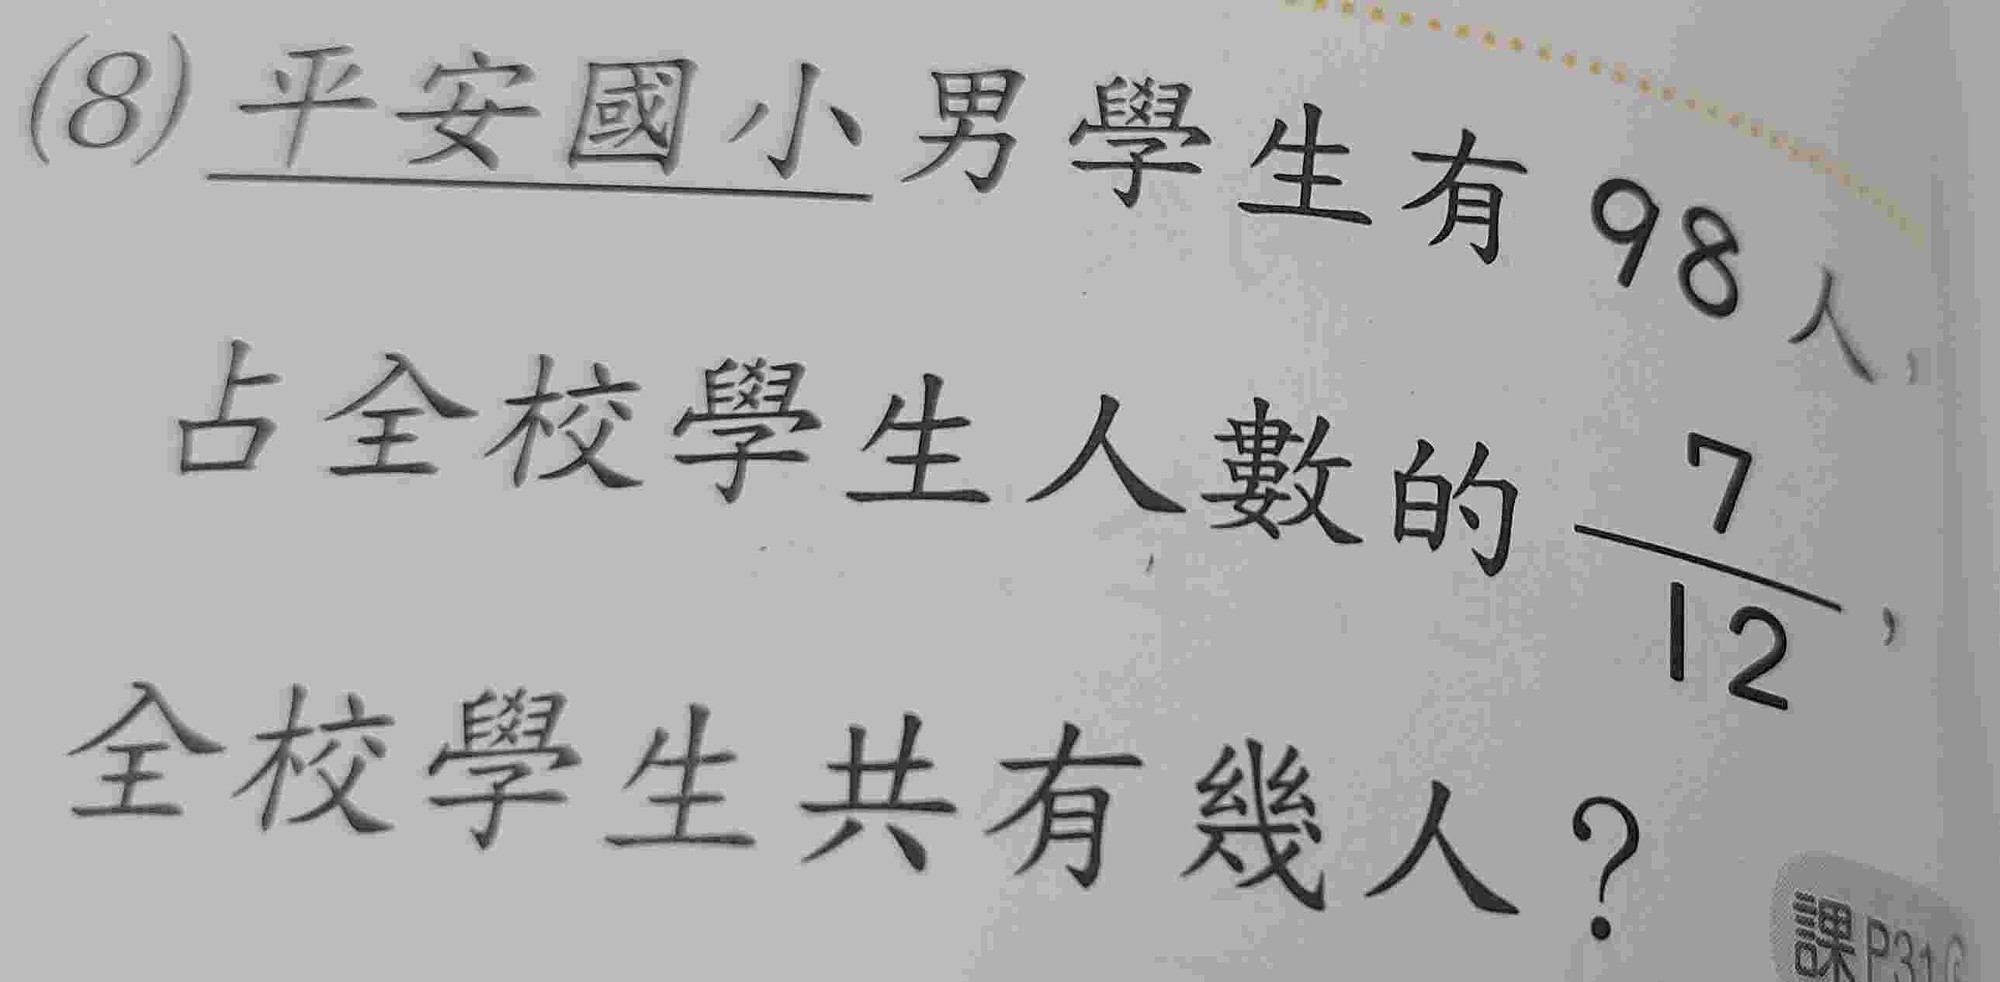 (8)平安國小男學生有98人，
占全校學生人數的7/12，
全校學生共有幾人？
課P31